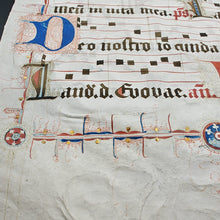 meū in uita mea. ps
Deo nostro io cunda
Laud. d. Euouae. añ.